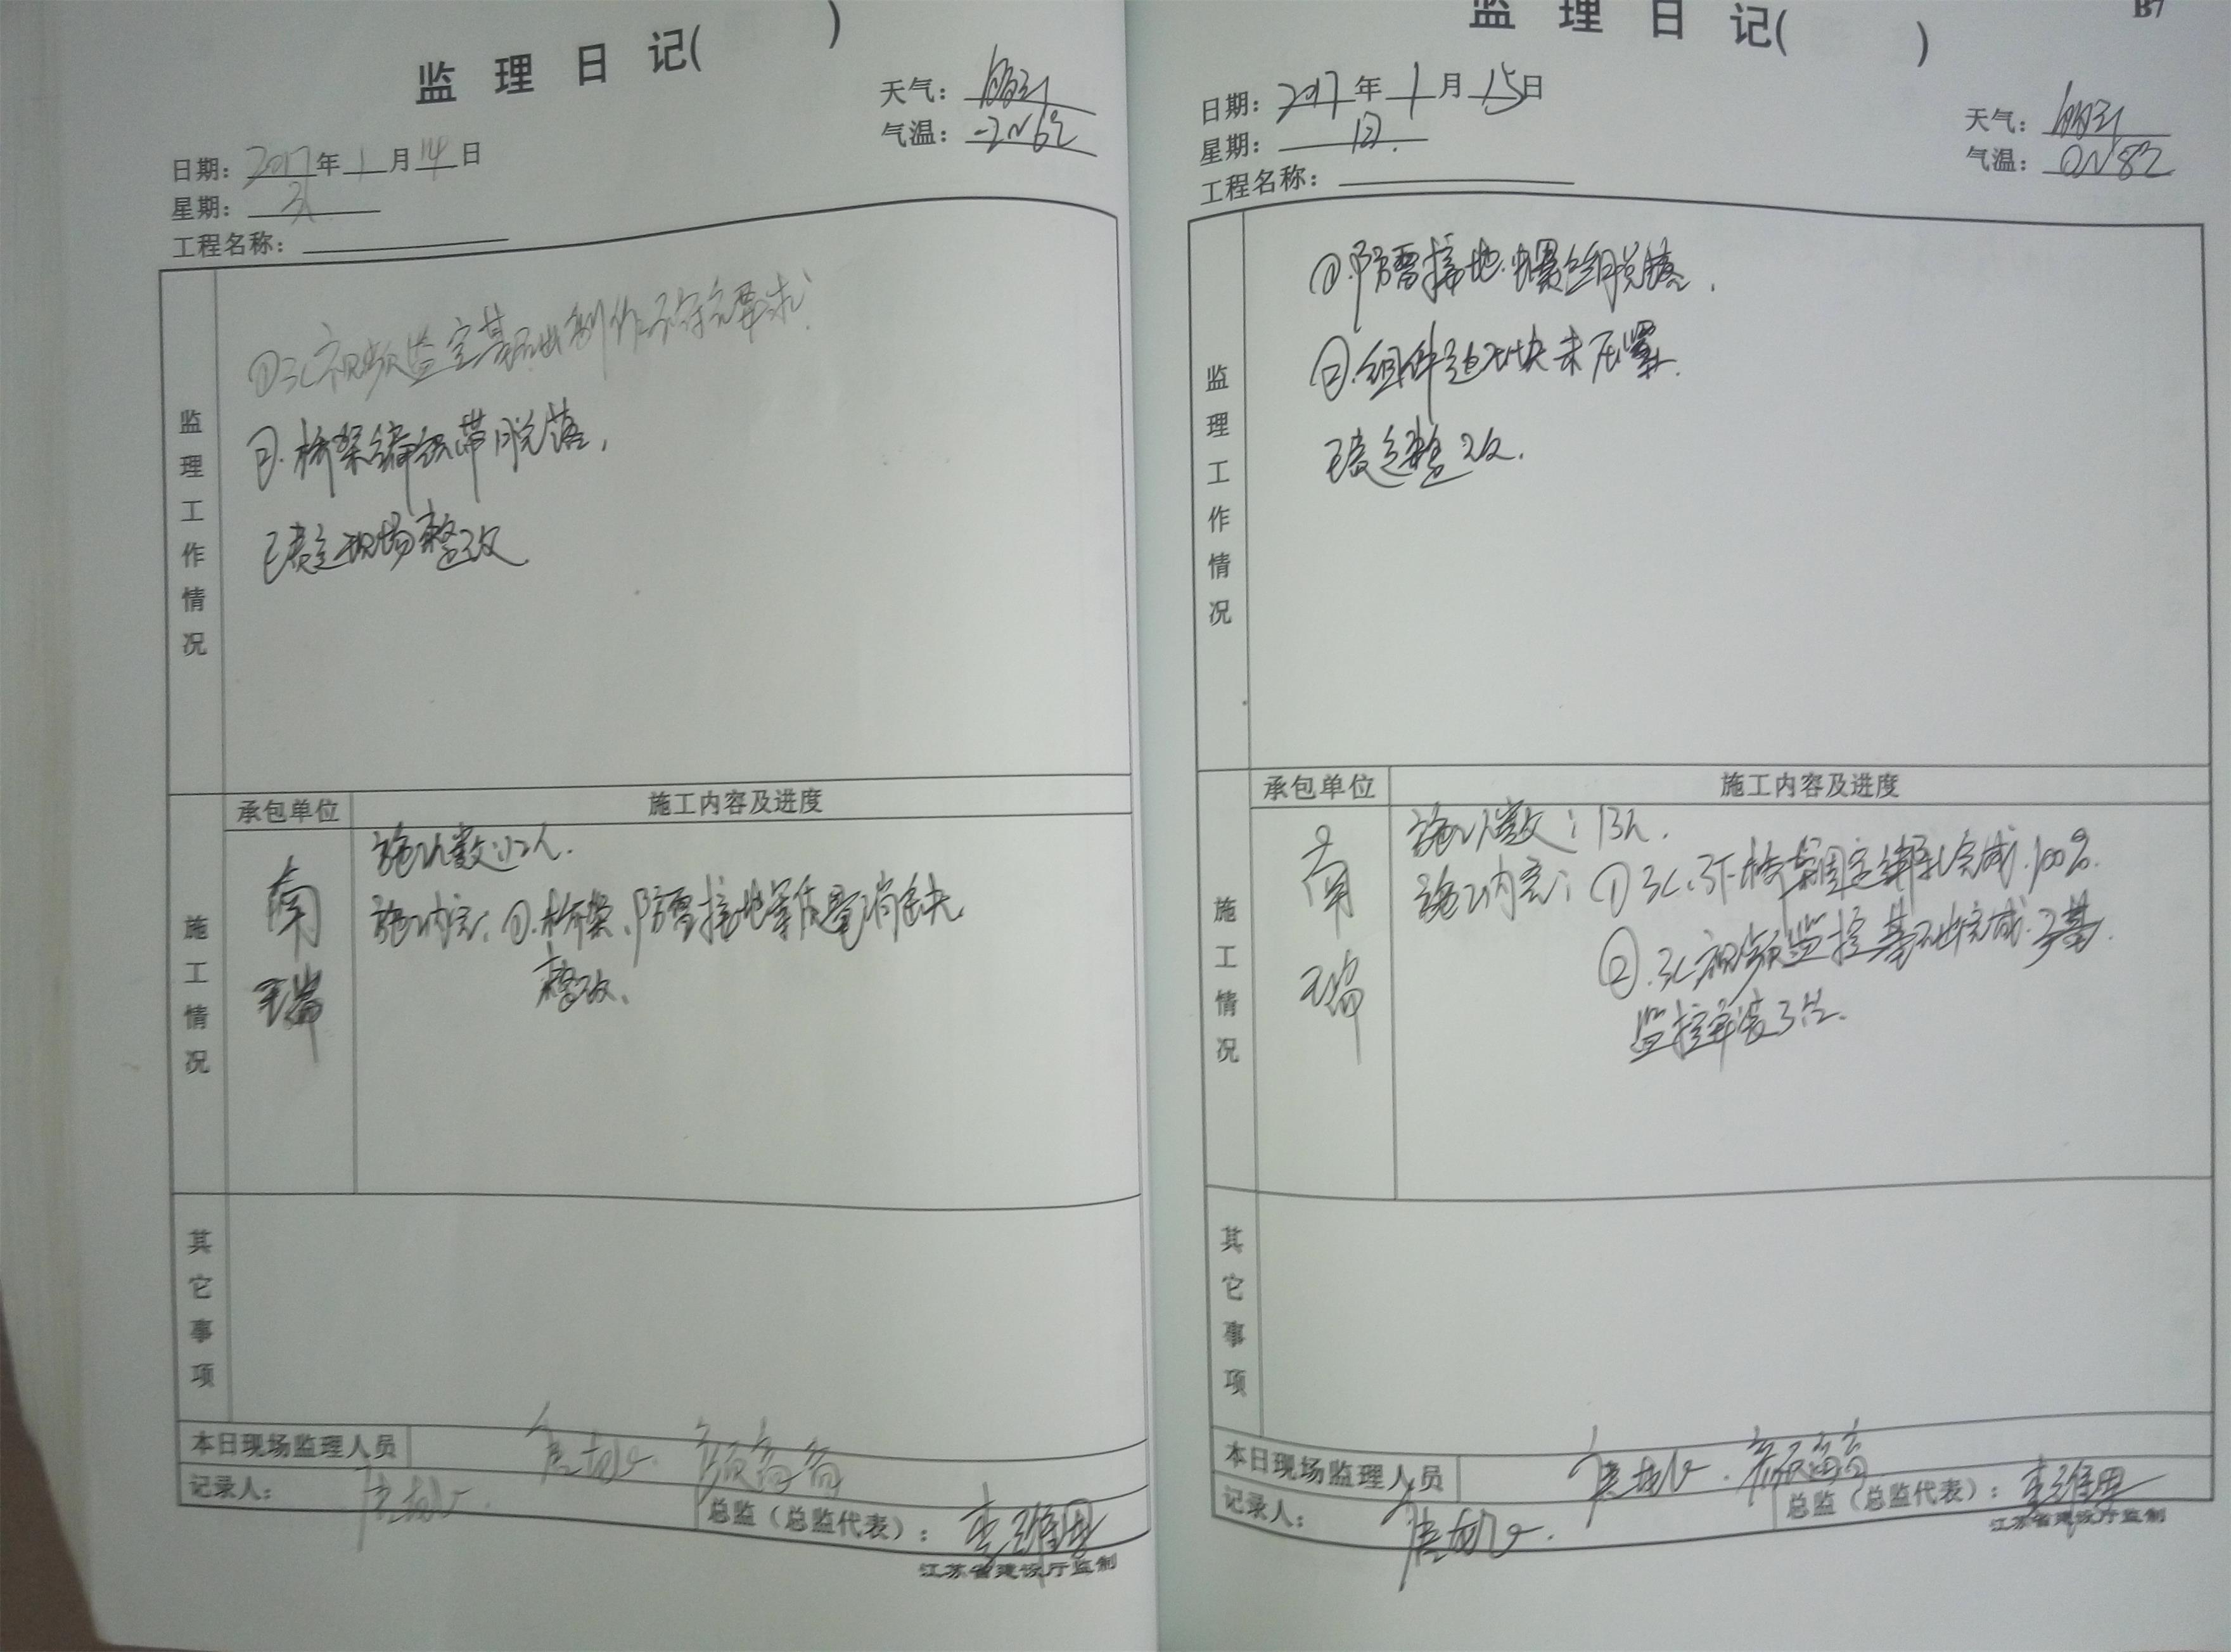 监 理 日 记( )
天气：晴
气温：-2~6℃
日期：2017年1月14日
星期：六
工程名称：
监理工作情况
①3#视频监控基础制作不符合要求
②.桥架编织带脱落，
已责令现场整改
施工情况
承包单位
施工内容及进度
南瑞
施工人数：12人.
施工内容：①.桥架、防雷接地等质量消缺
整改、
其它事项
本日现场监理人员
记录人：
总监（总监代表）：
江苏省建设厅监制
B7
监 理 日 记( )
日期：2017年1月15日
天气：晴
星期：日.
气温：0~8℃
工程名称：
监理工作情况
①.防雷接地螺丝脱落.
②.组件边压块未压紧.
已责令整改.
施工情况
承包单位
施工内容及进度
南瑞
施工人数：13人.
施工内容：①3#、桥架固定绑扎完成.100%.
②.3#视频监控基础完成3基.
监控安装3台.
其它事项
本日现场监理人员
记录人：
总监（总监代表）：
江苏省建设厅监制